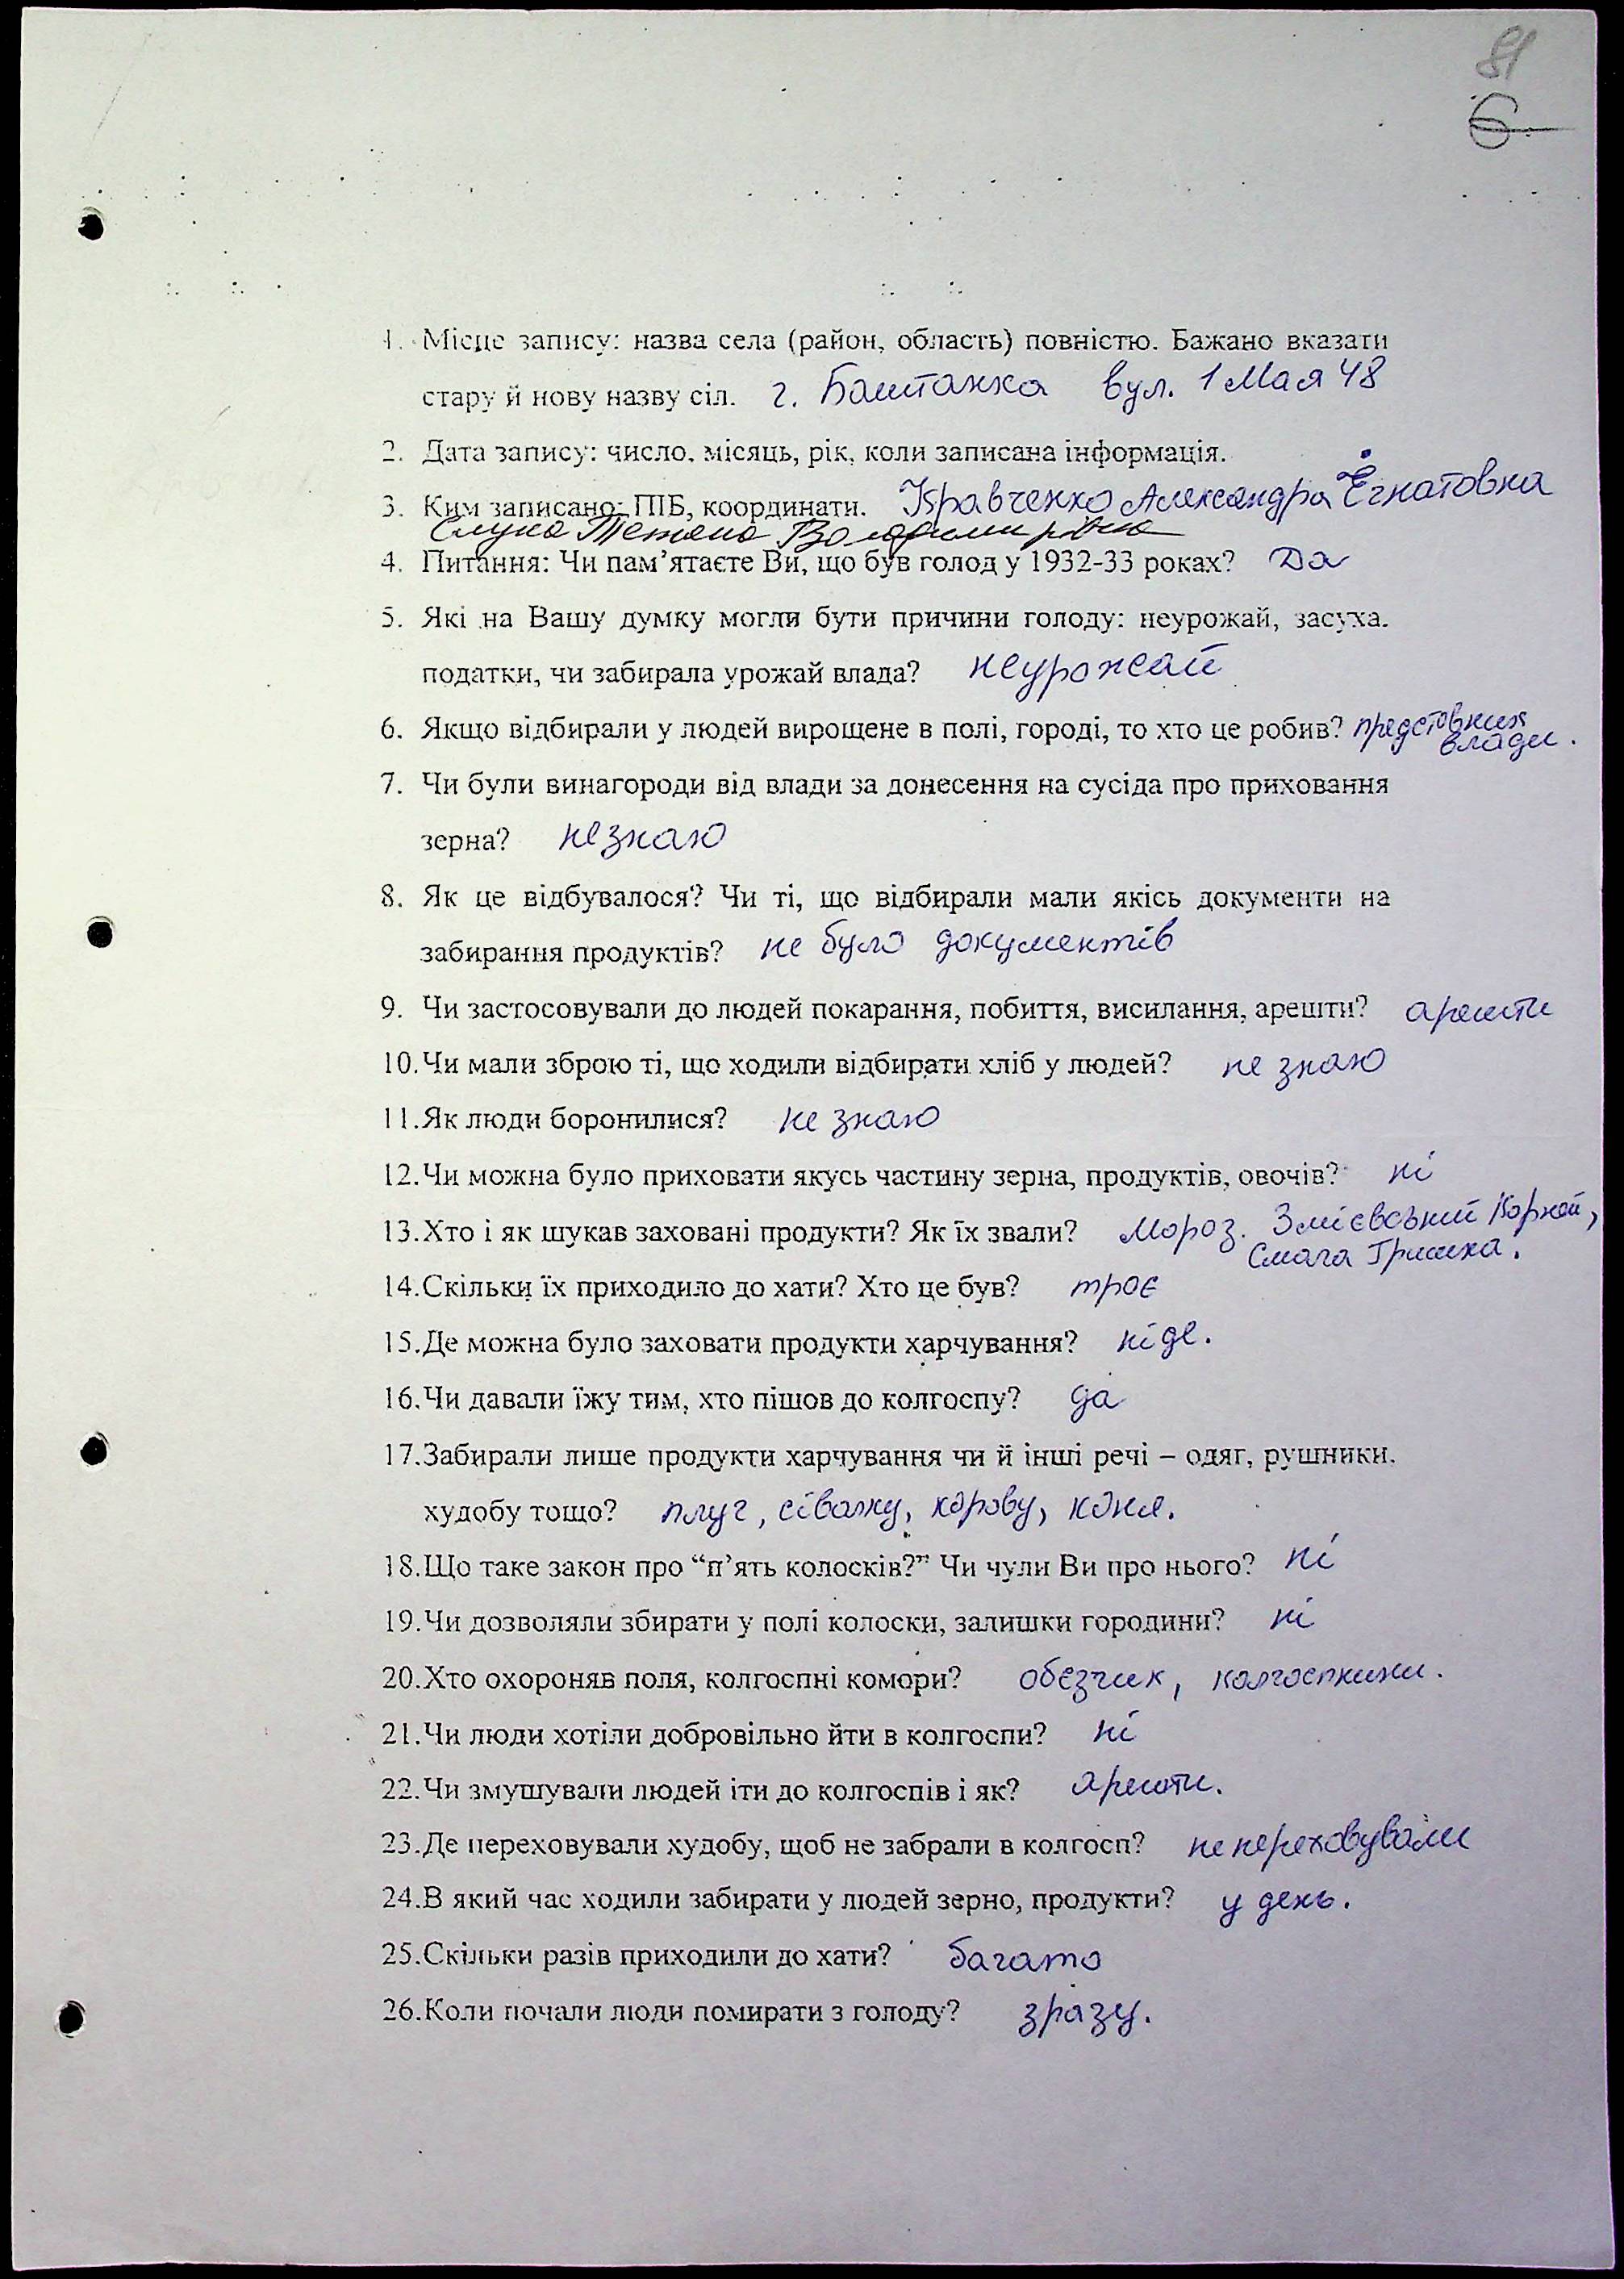 81
6
1. Місце запису: назва села (район, область) повністю. Бажано вказати
стару й нову назву сіл. г. Баштанка вул. 1 Мая 48
2. Дата запису: число, місяць, рік, коли записана інформація.
3. Ким записано: ПІБ, координати. Кравченко Александра Егнатовна
Тетяна Володимирівна
4. Питання: Чи пам’ятаєте Ви, що був голод у 1932-33 роках? Да
5. Які на Вашу думку могли бути причини голоду: неурожай, засуха.
податки, чи забирала урожай влада? неурожай
6. Якщо відбирали у людей вирощене в полі, городі, то хто це робив? предстовник
влади.
7. Чи були винагороди від влади за донесення на сусіда про приховання
зерна? не знаю
8. Як це відбувалося? Чи ті, що відбирали мали якісь документи на
забирання продуктів? не було документів
9. Чи застосовували до людей покарання, побиття, висилання, арешти? арешти
10. Чи мали зброю ті, що ходили відбирати хліб у людей? не знаю
11. Як люди боронилися? не знаю
12. Чи можна було приховати якусь частину зерна, продуктів, овочів? ні
13. Хто і як шукав заховані продукти? Як їх звали? Мороз. Змієвський Корней,
Смага Гришка.
14. Скільки їх приходило до хати? Хто це був? троє
15. Де можна було заховати продукти харчування? ніде.
16. Чи давали їжу тим, хто пішов до колгоспу? да
17. Забирали лише продукти харчування чи й інші речі – одяг, рушники.
худобу тощо? плуг, сівалку, корову, коня.
18. Що таке закон про “п’ять колосків?” Чи чули Ви про нього? ні
19. Чи дозволяли збирати у полі колоски, залишки городини? ні
20. Хто охороняв поля, колгоспні комори? обєзчик, колгоспники.
21. Чи люди хотіли добровільно йти в колгоспи? ні
22. Чи змушували людей іти до колгоспів і як? арешти.
23. Де переховували худобу, щоб не забрали в колгосп? не переховували
24. В який час ходили забирати у людей зерно, продукти? у день.
25. Скільки разів приходили до хати? багато
26. Коли почали люди помирати з голоду? зразу.